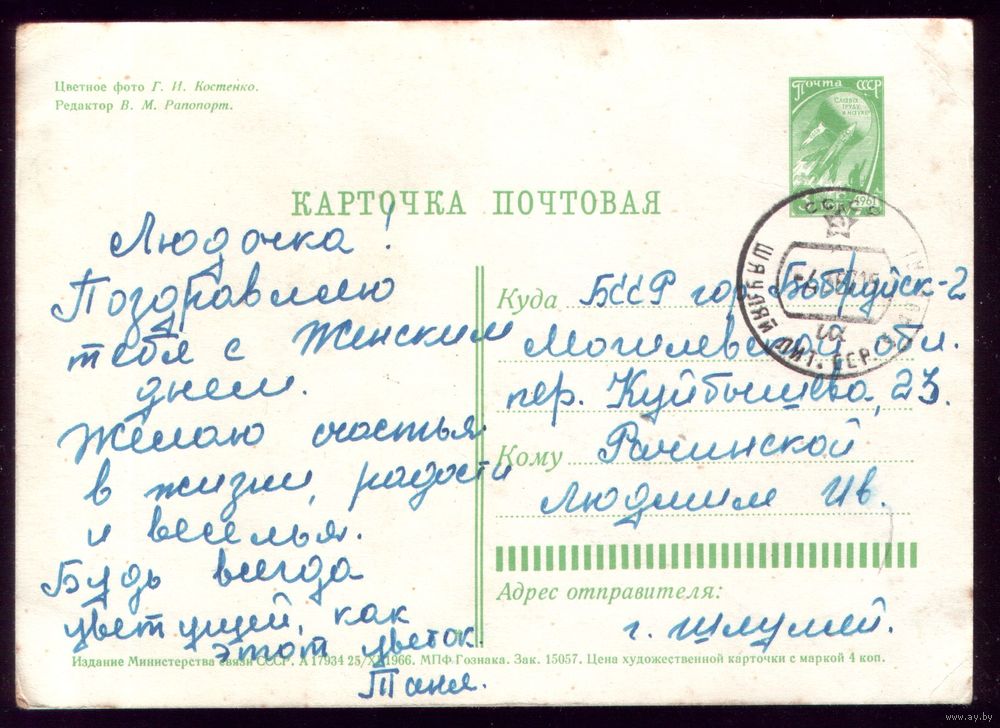 Цветное фото Г. И. Костенко.
Редактор В. М. Рапопорт.
Почта СССР
Слава труду и науке
1961
КАРТОЧКА ПОЧТОВАЯ
Людочка!
Поздравляю
тебя с Женским
днем.
Желаю счастья
в жизни, радости
и веселья.
Будь всегда
цветущей, как
этот цветок.
Таня.
Куда БССР гор. Бобруйск-2
Могилевской обл.
пер. Куйбышева, 23.
Кому Рачинской
Людмиле Ив.
Адрес отправителя:
г. Шяуляй.
Издание Министерства связи СССР. А 17934 25/XI 1966. МПФ Гознака. Зак. 15057. Цена художественной карточки с маркой 4 коп.
www.ay.by